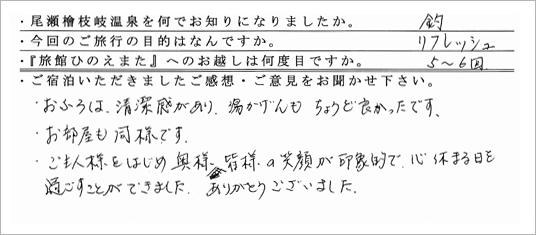 ・尾瀬檜枝岐温泉を何でお知りになりましたか。 釣
・今回のご旅行の目的はなんですか。 リフレッシュ
・『旅館ひのえまた』へのお越しは何度目ですか。 5〜6回
・ご宿泊いただきましたご感想・ご意見をお聞かせ下さい。
・おふろは、清潔感があり、湯かげんも ちょうど良かったです、
・お部屋も同様です.
・ご主人様をはじめ 奥様、皆様の笑顔が印象的で、心休まる日を
過ごすことができました. ありがとうございました.